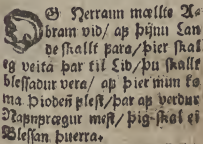 OG Herrann mællte Ab
bram vid/ aþ þijnu Lan
de skallt þara/ Þier skal
eg veita þar til Lid/ Þu skallt
blessadur vera/ aþ þier mun ko
ma Þioden plest/ Þar aþ verdur
Naþnprægur mest/ þig skal ei
Blessan þuerra.